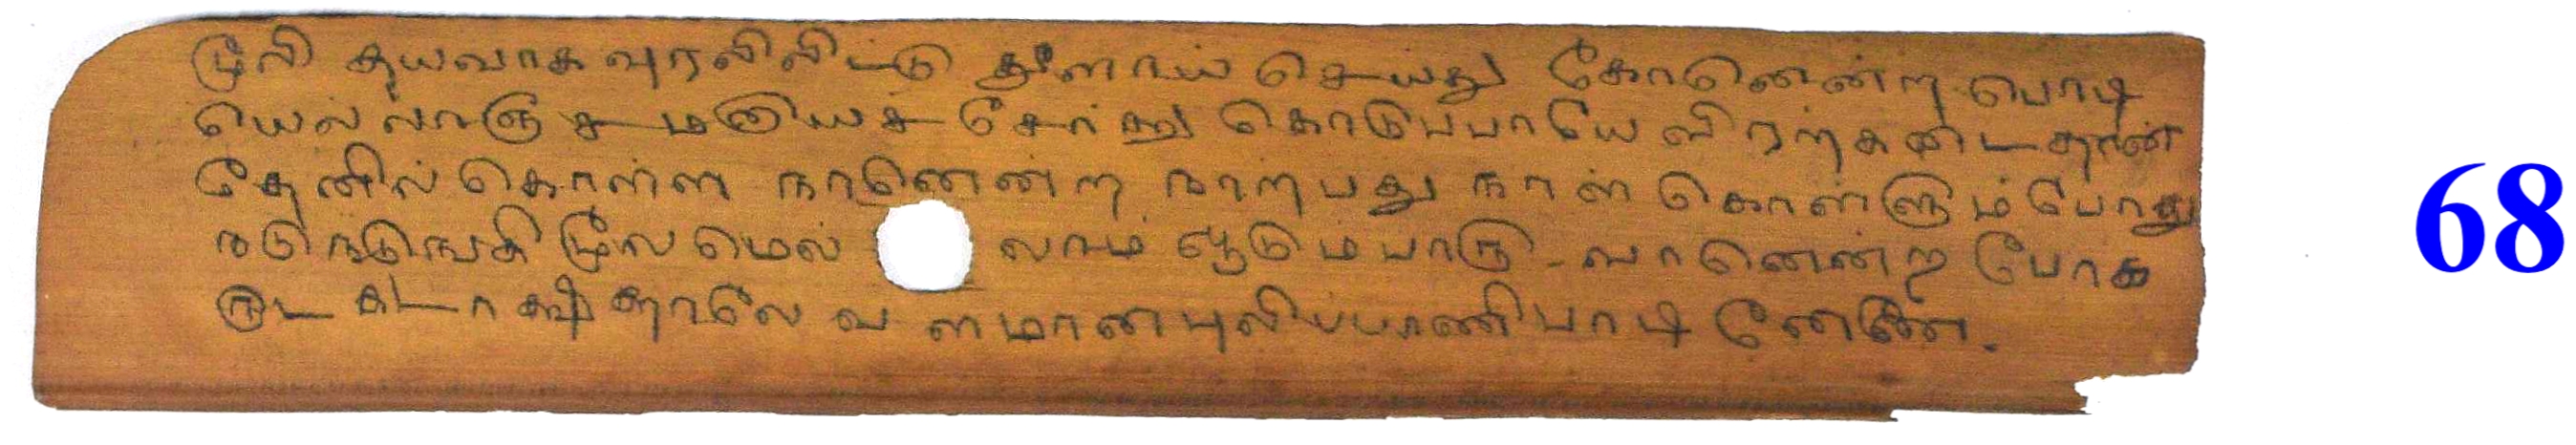 மூலி தூயவாக வுரலிலிட்டு தூளாய் செய்து கோனென்ற பொடி
யெல்லாஞ் சமனியச் சேர்த்து கொடுப்பாயே விரற்கடைதான்
தேனில் கொள்ள நானென்ற நாற்பது நாள் கொள்ளும் போது
நடு நடுங்கி மூல மெல் லாம் ஓடும்பாரு - வானென்ற போக
ருட கடாக்ஷத்தாலே வளமான புலிப்பாணி பாடினேனே.
68